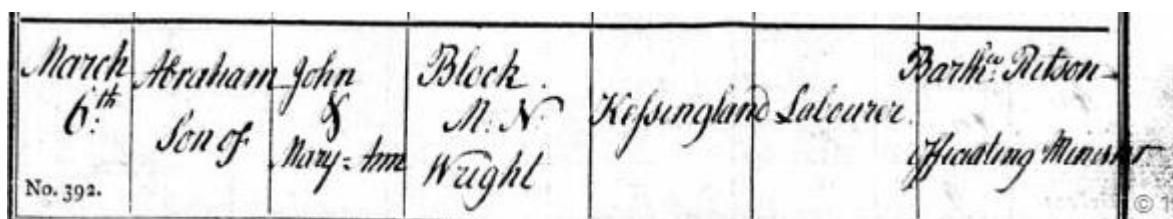 March
6.th
No. 392.
Abraham
Son of
John
&
Mary=Ann
Block.
M. N.
Wright
Kessingland
Labourer.
Barthw. Ritson
Officiating Minister
©